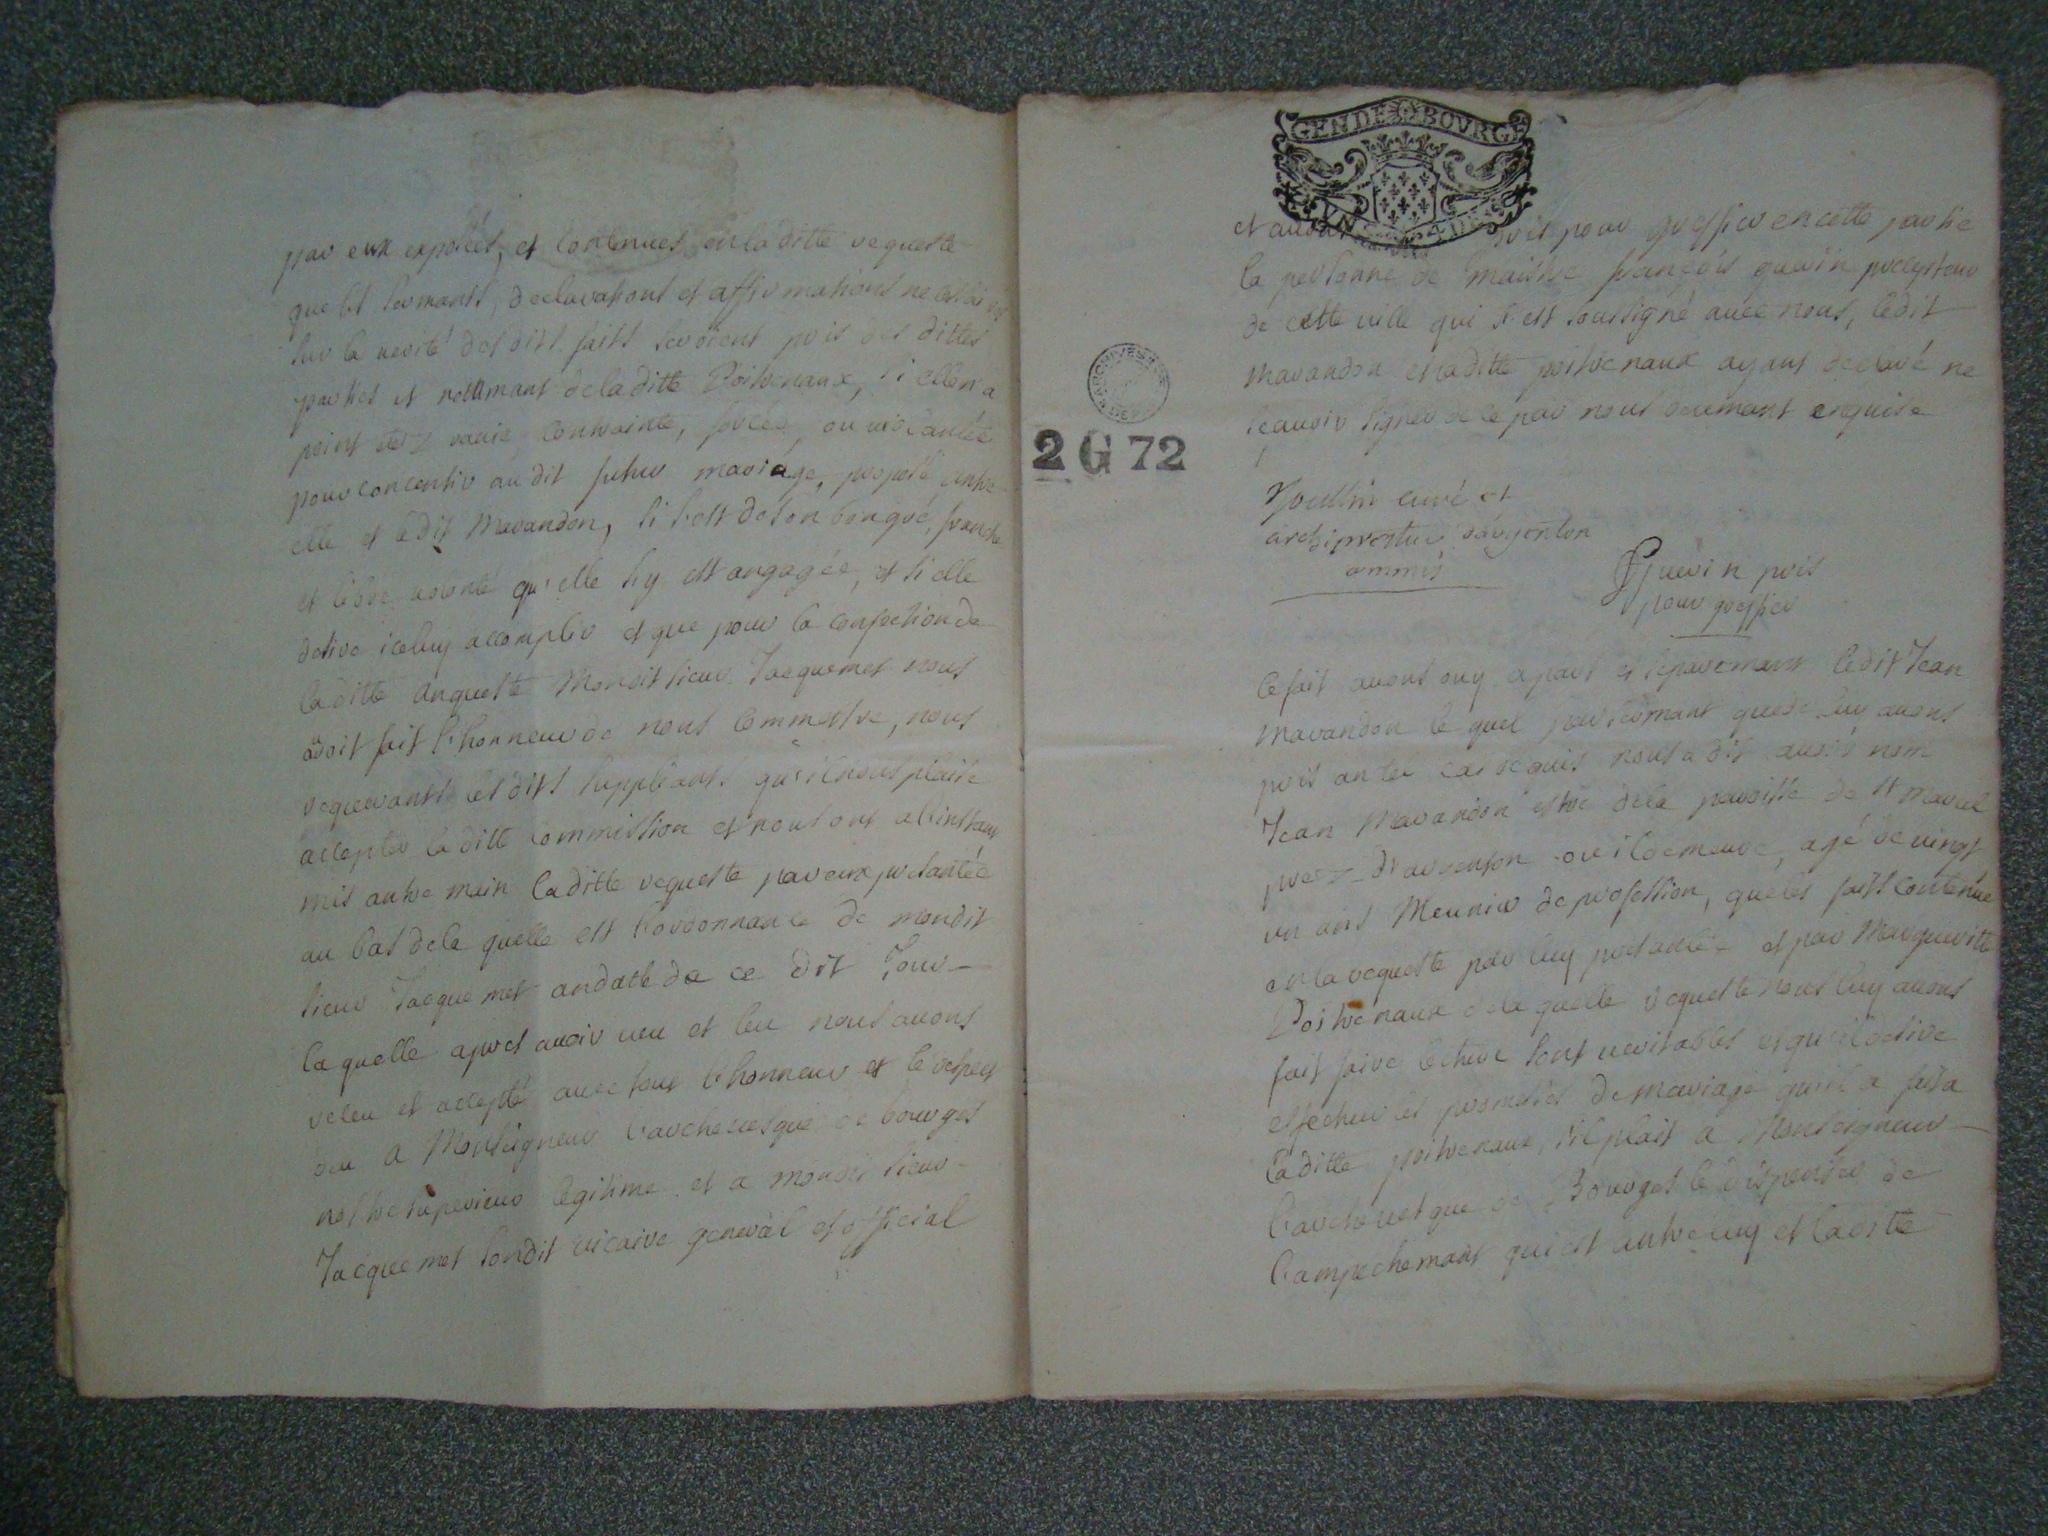 par eux exposées, et contenues en la ditte requeste
que les sermants, declarations et affirmations necessaires
sur la verité des dits faits seroient pris des dittes
parties et notamant de la ditte Poitrenaux, si elle n'a
point estez ravie contrainte, forcée, ou viocantée
pour concentir au dit futur mariage, projesté antre
elle et ledit Marandon, si s'est de son bon gré, franche
et libre volonté qu'elle s'y est angagée, et si elle
desire iceluy accomplir et que pour la confection de
la ditte anqueste Mondit sieur Jacquemet nous
avoit fait l'honneur de nous commettre, nous
requerants les dits suppliants qu'il nous plaise
accepter la ditte commission et nous ont a l'instant
mis antre main la ditte requeste par eux presantée
au bas de la quelle est l'ordonnance de mondit
sieur Jacquemet en datte de ce dit Jour
la quelle apres avoir veu et leu nous avons
receu et accepté avec tout l'honneur et le respect
deu a Monseigneur l'archevesque de bourges
nostre superieur legitime et a mondit sieur
Jacquemet sondit vicaire general et official
GEN DE BOVRGE
et avons pris pour greffier en cette partie
la personne de maistre françois guerin precepteur
de cette ville qui s'est soussigné avec nous, ledit
Marandon et la ditte poitrenaux ayant declaré ne
scavoir signer de ce par nous deumant enquise
ARCHIVES
2 G 72
curé et
archiprestre d'argenton
commis
Guerin pris
pour greffier
Ce fait avons ouy apart et separemant ledit Jean
Marandon le quel par sermant que de luy avons
pris an tel cas requis nous a dit avoir nom
Jean Marandon estre de la paroisse de st Marcel
prez d'argenton ou il demeure, agé de vingt
un ans Meunier de profession, que les faits contenue
en la requeste par luy presantée et par Marguerite
Poitrenaux de la quelle requeste nous luy avons
fait faire lecture sont veritables et qu'il desire
effectuer les promesses de mariage qu'il a fait a
la ditte poitrenaux, s'il plait a Monseigneur
l'archevesque de Bourges le dispenser de
l'ampechemant qui est antre luy et la ditte